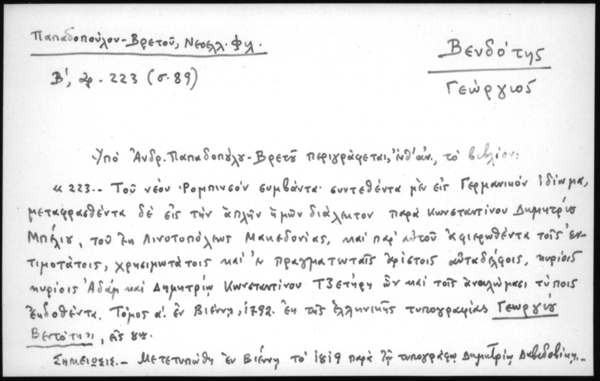 Παπαδοπούλου-Βρετοῦ, Νεοελλ. Φιλ.
Β', ἀρ. 223 (σ. 89)
Βενδότης
Γεώργιος
Ὑπὸ Ἀνδρ. Παπαδοπούλου-Βρετοῦ περιγράφεται, ἔνθ' ἀν., τὸ βιβλίον:
«223.- Τοῦ νέου Ῥομπινσὸν συμβάντα συντεθέντα μὲν εἰς Γερμανικὸν ἰδίωμα,
μεταφρασθέντα δὲ εἰς τὴν ἁπλῆν ἡμῶν διάλεκτον παρὰ Κωνσταντίνου Δημητρίου
Μπέλιου, τοῦ ἐκ Λινοτοπόλεως Μακεδονίας, καὶ παρ' αὐτοῦ ἀφιερωθέντα τοῖς ἐν-
τιμοτάτοις, χρησιμωτάτοις καὶ ἐν πραγματευταῖς ἀρίστοις αὐταδέλφοις, κυρίοις
κυρίοις Ἀδὰμ καὶ Δημητρίῳ Κωνσταντίνου Τζετήρη ὧν καὶ τοῖς ἀναλώμασι τύποις
ἐκδοθέντα. Τόμος α'. ἐν Βιέννῃ, 1792. Ἐκ τῆς ἑλληνικῆς τυπογραφίας Γεωργίου
Βεντότη», εἰς
Σημείωσις.- Μετετυπώθη ἐν Βιέννῃ τὸ 1819 παρὰ τῷ τυπογράφῳ Δημητρίῳ Δαβιδοβίκῃ.-